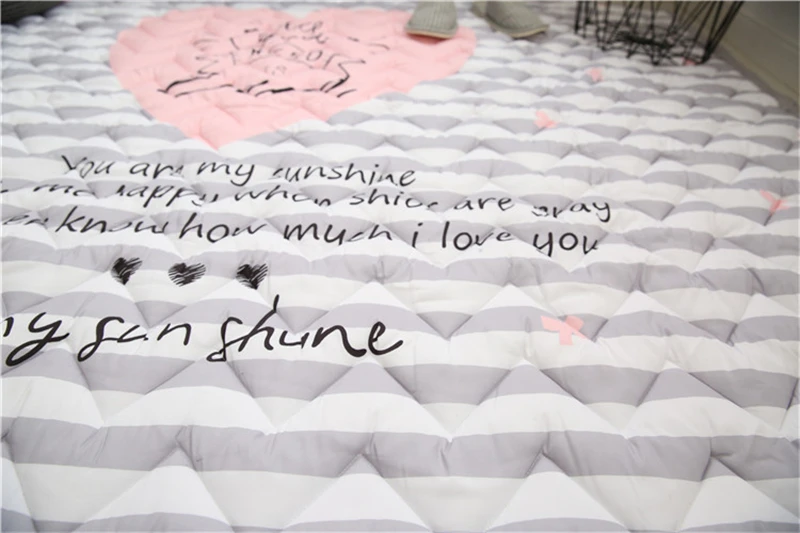 You are my sunshine
me happy when shies are gray
know how much i love you
my sunshine